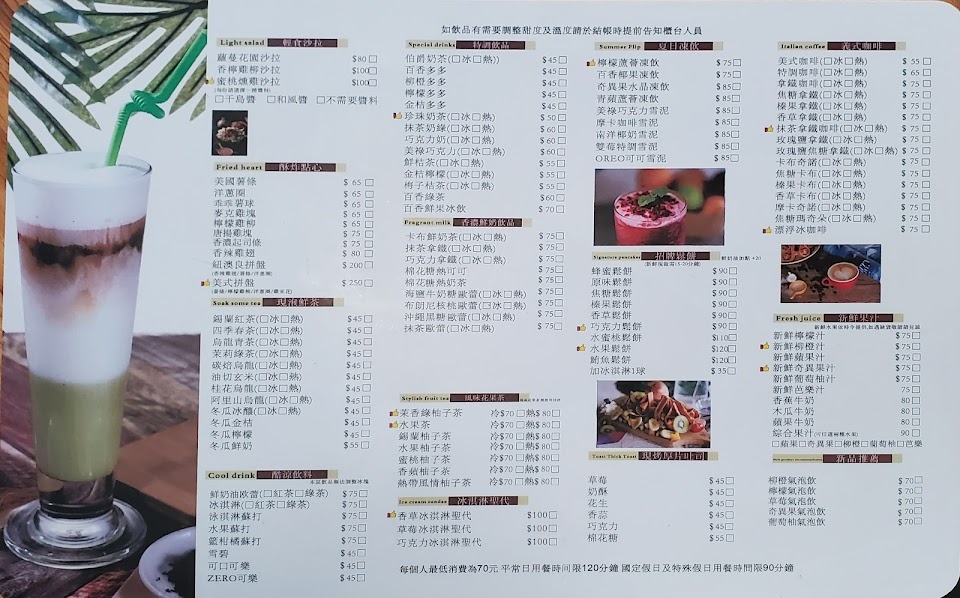 如飲品有需要調整甜度及溫度請於結帳時提前告知櫃台人員
Light salad 輕食沙拉
蘿蔓花園沙拉 $80□
香檸雞柳沙拉 $100□
蜜桃燻雞沙拉 $100□
□千島醬 □和風醬 □不需要醬料
Fried heart 酥炸點心
美國薯條 $65□
洋蔥圈 $65□
乖乖薯球 $65□
麥克雞塊 $65□
檸檬雞柳 $65□
唐揚雞塊 $75□
香濃起司條 $75□
香辣雞翅 $80□
紐澳良拼盤 $200□
美式拼盤 $250□
Soak some tea 現泡鮮茶
錫蘭紅茶(□冰□熱) $45□
四季春茶(□冰□熱) $45□
烏龍青茶(□冰□熱) $45□
茉莉綠茶(□冰□熱) $45□
碳焙烏龍(□冰□熱) $45□
油切玄米(□冰□熱) $45□
桂花烏龍(□冰□熱) $45□
阿里山烏龍(□冰□熱) $45□
冬瓜冰釀(□冰□熱) $45□
冬瓜金桔 $55□
冬瓜檸檬 $55□
冬瓜鮮奶 $55□
Cool drink 酷涼飲料
本區飲品無法調整冰塊
鮮奶油欧蕾(□紅茶□綠茶) $75□
冰淇淋(□紅茶□綠茶) $75□
泳淇淋蘇打 $75□
水果蘇打 $75□
籃柑橘蘇打 $75□
雪碧 $45□
可口可樂 $45□
ZERO可樂 $45□
Special drinks 特調飲品
伯爵奶茶(□冰□熱)) $45□
百香多多 $45□
柳橙多多 $45□
檸檬多多 $45□
金桔多多 $45□
珍珠奶茶(□冰□熱) $50□
抹茶奶綠(□冰□熱) $60□
巧克力奶(□冰□熱) $60□
美祿巧克力(□冰□熱) $60□
鮮桔茶(□冰□熱) $55□
金桔檸檬(□冰□熱) $55□
梅子桔茶(□冰□熱) $55□
百香綠茶 $60□
百香鮮果冰飲 $70□
Fragrant milk 香濃鮮奶飲品
卡布鮮奶茶(□冰□熱) $75□
抹茶拿鐵(□冰□熱) $75□
巧克力拿鐵(□冰□熱) $75□
棉花糖熱可可 $75□
棉花糖熱奶茶 $75□
海鹽牛奶糖歐蕾(□冰□熱) $75□
布朗尼核桃歐蕾(□冰□熱) $75□
沖繩黑糖歐蕾(□冰□熱) $75□
抹茶歐蕾(□冰□熱) $75□
Stylish fruit tea 風味花果茶
茉香綠柚子茶 冷$70□熱$80□
水果茶 冷$70□熱$80□
錫蘭柚子茶 冷$70□熱$80□
水蜜桃茶 冷$70□熱$80□
蜜桃柚子茶 冷$70□熱$80□
香蘋柚子茶 冷$70□熱$80□
熱帶風情柚子茶 冷$70□熱$80□
Ice cream sundae 冰淇淋聖代
香草冰淇淋聖代 $100□
草莓冰淇淋聖代 $100□
巧克力冰淇淋聖代 $100□
Summer Flip 夏日凍飲
檸檬蘆薈凍飲 $75□
百香椰果凍飲 $75□
奇異果水晶凍飲 $85□
青蘋蘆薈凍飲 $85□
美祿巧克力雪泥 $85□
摩卡咖啡雪泥 $85□
南洋椰奶雪泥 $85□
雙莓特調雪泥 $85□
OREO可可雪泥 $85□
Signature pancakes 招牌鬆餅
蜂蜜鬆餅 $90□
原味鬆餅 $90□
焦糖鬆餅 $90□
榛果鬆餅 $90□
香草鬆餅 $90□
巧克力鬆餅 $90□
水蜜桃鬆餅 $110□
水果鬆餅 $120□
鮪魚鬆餅 $120□
加冰淇淋1球 $35□
Toast Thick Toast 現烤厚片吐司
草莓 $45□
奶酥 $45□
花生 $45□
香蒜 $45□
巧克力 $45□
棉花糖 $55□
Italian coffee 義式咖啡
美式咖啡(□冰□熱) $55□
特調咖啡(□冰□熱) $65□
拿鐵咖啡(□冰□熱) $75□
焦糖拿鐵(□冰□熱) $75□
榛果拿鐵(□冰□熱) $75□
香草拿鐵(□冰□熱) $75□
抹茶拿鐵咖啡(□冰□熱) $75□
玫瑰鹽拿鐵(□冰□熱) $75□
玫瑰鹽焦糖拿鐵(□冰□熱) $75□
卡布奇諾(□冰□熱) $75□
焦糖卡布(□冰□熱) $75□
榛果卡布(□冰□熱) $75□
香草卡布(□冰□熱) $75□
摩卡奇諾(□冰□熱) $75□
焦糖瑪奇朵(□冰□熱) $75□
漂浮冰咖啡 $75□
Fresh juice 新鮮果汁
新鮮檸檬汁 $75□
新鮮柳橙汁 $75□
新鮮蘋果汁 $75□
新鮮奇異果汁 $75□
新鮮葡萄柚汁 $75□
新鮮芭樂汁 75□
香蕉牛奶 80□
木瓜牛奶 80□
蘋果牛奶 80□
綜合果汁 90□
□蘋果□奇異果□柳橙□葡萄柚□芭樂
新品推薦
柳橙氣泡飲 $70□
檸檬氣泡飲 $70□
草莓氣泡飲 $70□
奇異果氣泡飲 $70□
葡萄柚氣泡飲 $70□
每個人最低消費為70元 平常日用餐时间限120分鐘 國定假日及特殊假日用餐時間限90分鐘